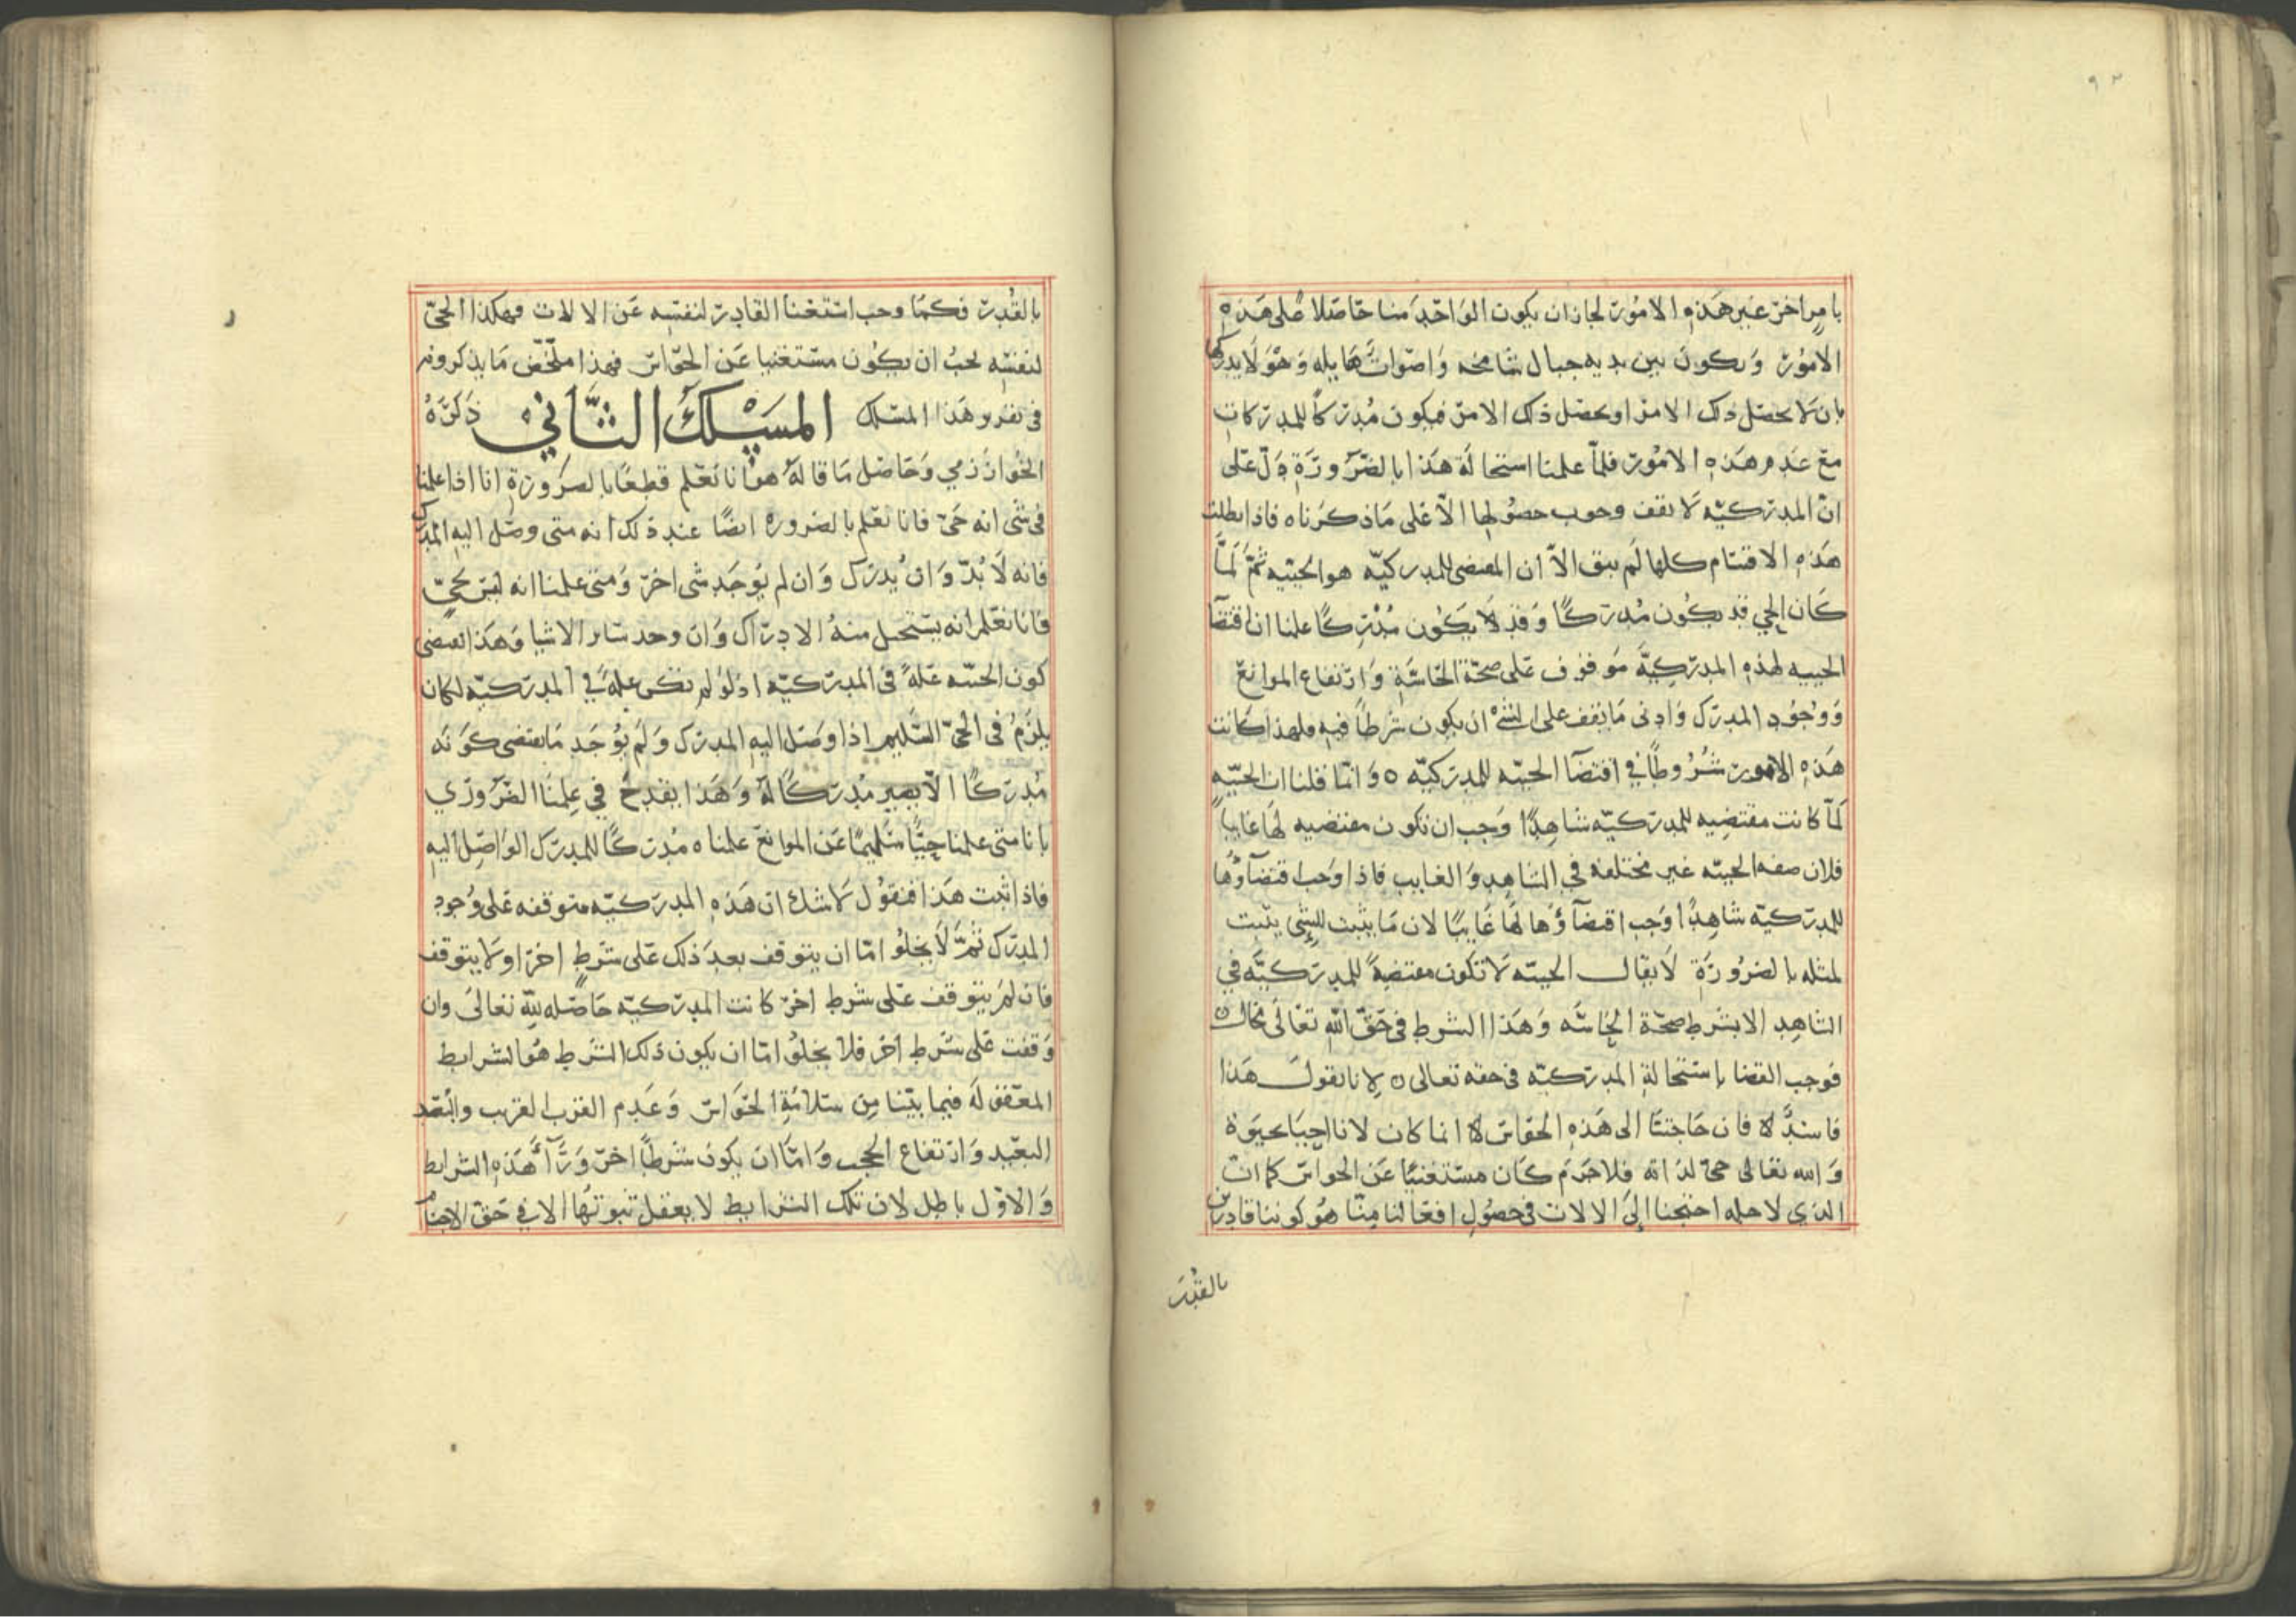 ٩٢
بامر اخر غير هذه الامور لجاز ان يكون الواحد منا حاصلا على هذه
الامور ويكون بين يديه جبال شامخه واصوات هايله وهو لا يدركها
بان لا يحصل ذلك الامر او يحصل ذلك الامر فيكون مدركا للمدركات
مع عدم هذه الامور فلما علمنا استحالة هذا بالضرورة دل على
ان المدركيه لا يقف وجوب حصولها الا على ما ذكرناه فاذا بطلت
هذه الاقسام كلها لم يبق الا ان المقتضى للمدركيه هو الحييه ثم لما
كان الحي قد يكون مدركا وقد لا يكون مدركا علمنا ان اقتضا
الحييه لهذه المدركية موقوف على صحة الحاسة وارتفاع الموانع
ووجود المدرك وادنى ما يقف على الشئ ان يكون شرطا فيه فلهذا كانت
هذه الامور شروطا في اقتضا الحييه للمدركيه ٥ وانما قلنا ان الحييه
لما كانت مقتضيه للمدركيه شاهدا وجب ان تكون مقتضيه لها غايبا
فلان صفه الحييه غير مختلفه في الشاهد والغايب فاذا وجب اقتضاؤها
للمدركيه شاهدا وجب اقتضاؤها لها غايبا لان ما يثبت للشئ يثبت
لمثله بالضرورة لا يقال الحييه لا تكون مقتضية للمدركية في
الشاهد الا بشرط صحة الحاسه وهذا الشرط في حق الله تعالى محال ٥
فوجب القضا باستحالة المدركيه في حقه تعالى ٥ لانا نقول هذا
فاسد لا فان حاجتنا الى هذه الحواس لا انما كان لانا احيا بحيوة
والله تعالى حي لذاته فلا جرم كان مستغنيا عن الحواس كما ان
الذي لاجله احتجنا الى الالات في حصول افعالنا منا هو كوننا قادرين
بالقدر
بالقدرة فكما وجب استغنا القادر لنفسه عن الالات فهكذا الحي
لنفسه يجب ان يكون مستغنيا عن الحواس فهذا ملخص ما يذكرونه
في تقرير هذا المسلك المسلك الثاني ذكره
الخوارزمي وحاصل ما قاله هو انا نعلم قطعا بالضرورة انا اذا علمنا
في شى انه حي فانا نعلم بالضروره ايضا عند ذلك انه متى وصل اليه المدرك
فانه لا بد وان يدرك وان لم يوجد شى اخر ومتى علمنا انه ليس بحي
فانا نعلم انه يستحيل منه الادراك وان وجد ساير الاشيا وهذا يقتضى
كون الحييه علة في المدركيه اذ لو لم تكن علة في المدركيه لكان
يلزم في الحي السليم اذا وصل اليه المدرك ولم يوجد ما يقتضى كونه
مدركا الا يصير مدركا له وهذا يقدح في علمنا الضروري
بانا متى علمنا حيا سليما عن الموانع علمناه مدركا للمدرك الواصل اليه
فاذا ثبت هذا فنقول لا شك ان هذه المدركيه متوقفه على وجود
المدرك ثم لا يخلوا اما ان يتوقف بعد ذلك على شرط اخر او لا يتوقف
فان لم يتوقف على شرط اخر كانت المدركيه حاصله لله تعالى وان
وقفت على شرط اخر فلا يخلو اما ان يكون ذلك الشرط هو الشرايط
المعقوله فيما بيننا من سلامة الحواس وعدم القرب القريب والبعد
البعيد وارتفاع الحجب واما ان يكون شرطا اخر ورآء هذه الشرايط
والاول باطل لان تلك الشرايط لا يعقل ثبوتها الا في حق الاجسام